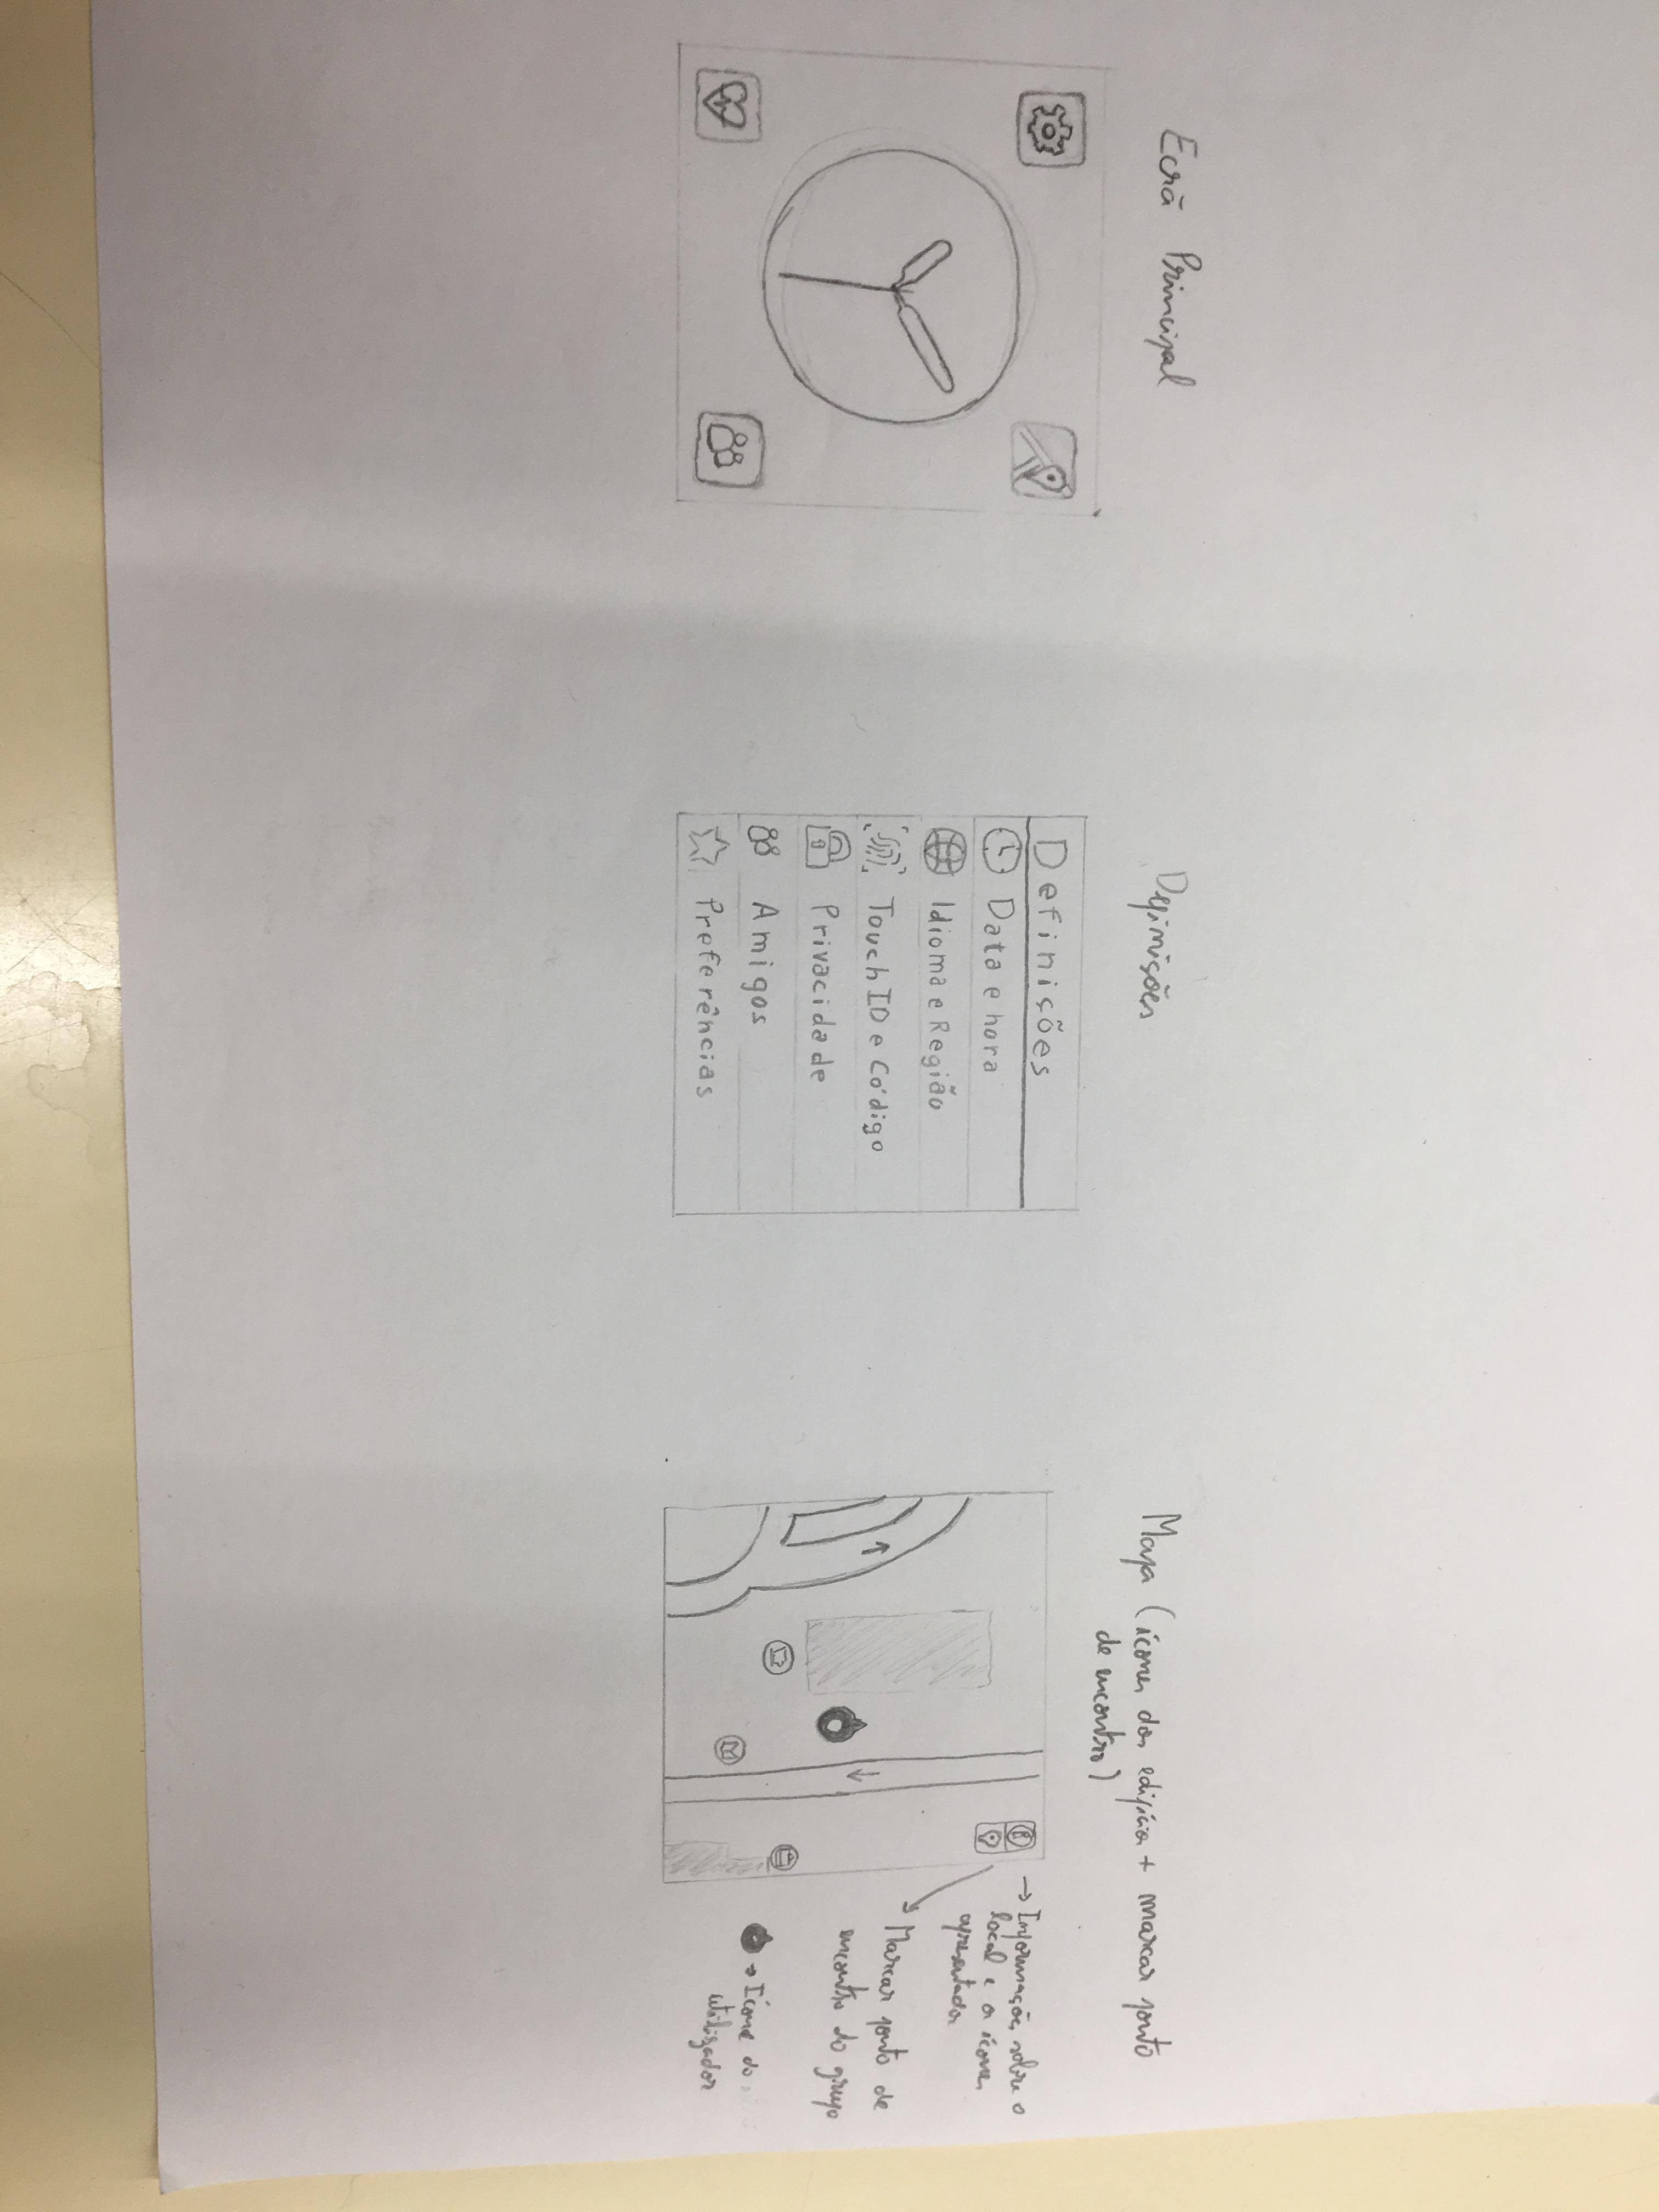 Ecrã Principal
Definições
Definições
Data e hora
Idioma e Região
Touch ID e Código
Privacidade
Amigos
Preferências
Mapa (ícones dos edifícios + marcar ponto
de encontro)
→ Informações sobre o
local e os ícones
apresentados
→ Marcar ponto de
encontro do grupo
→ Ícone do
utilizador